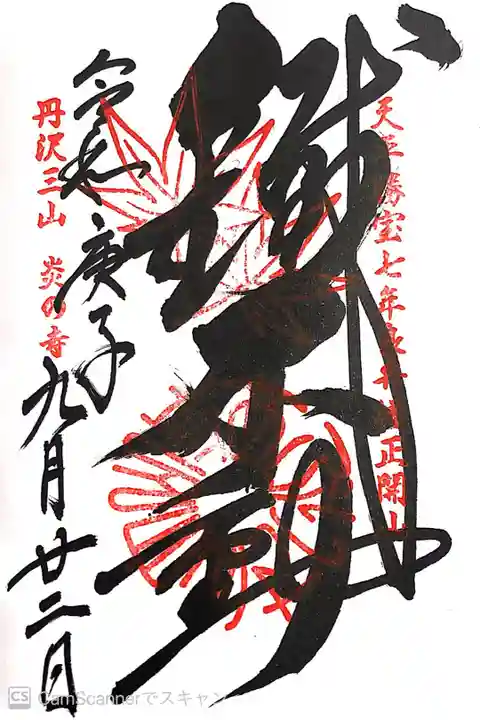 天平勝宝七年良弁僧正開山
鐵不動
丹沢三山 炎の寺
令和庚子九月廿二日
CamScannerでスキャン